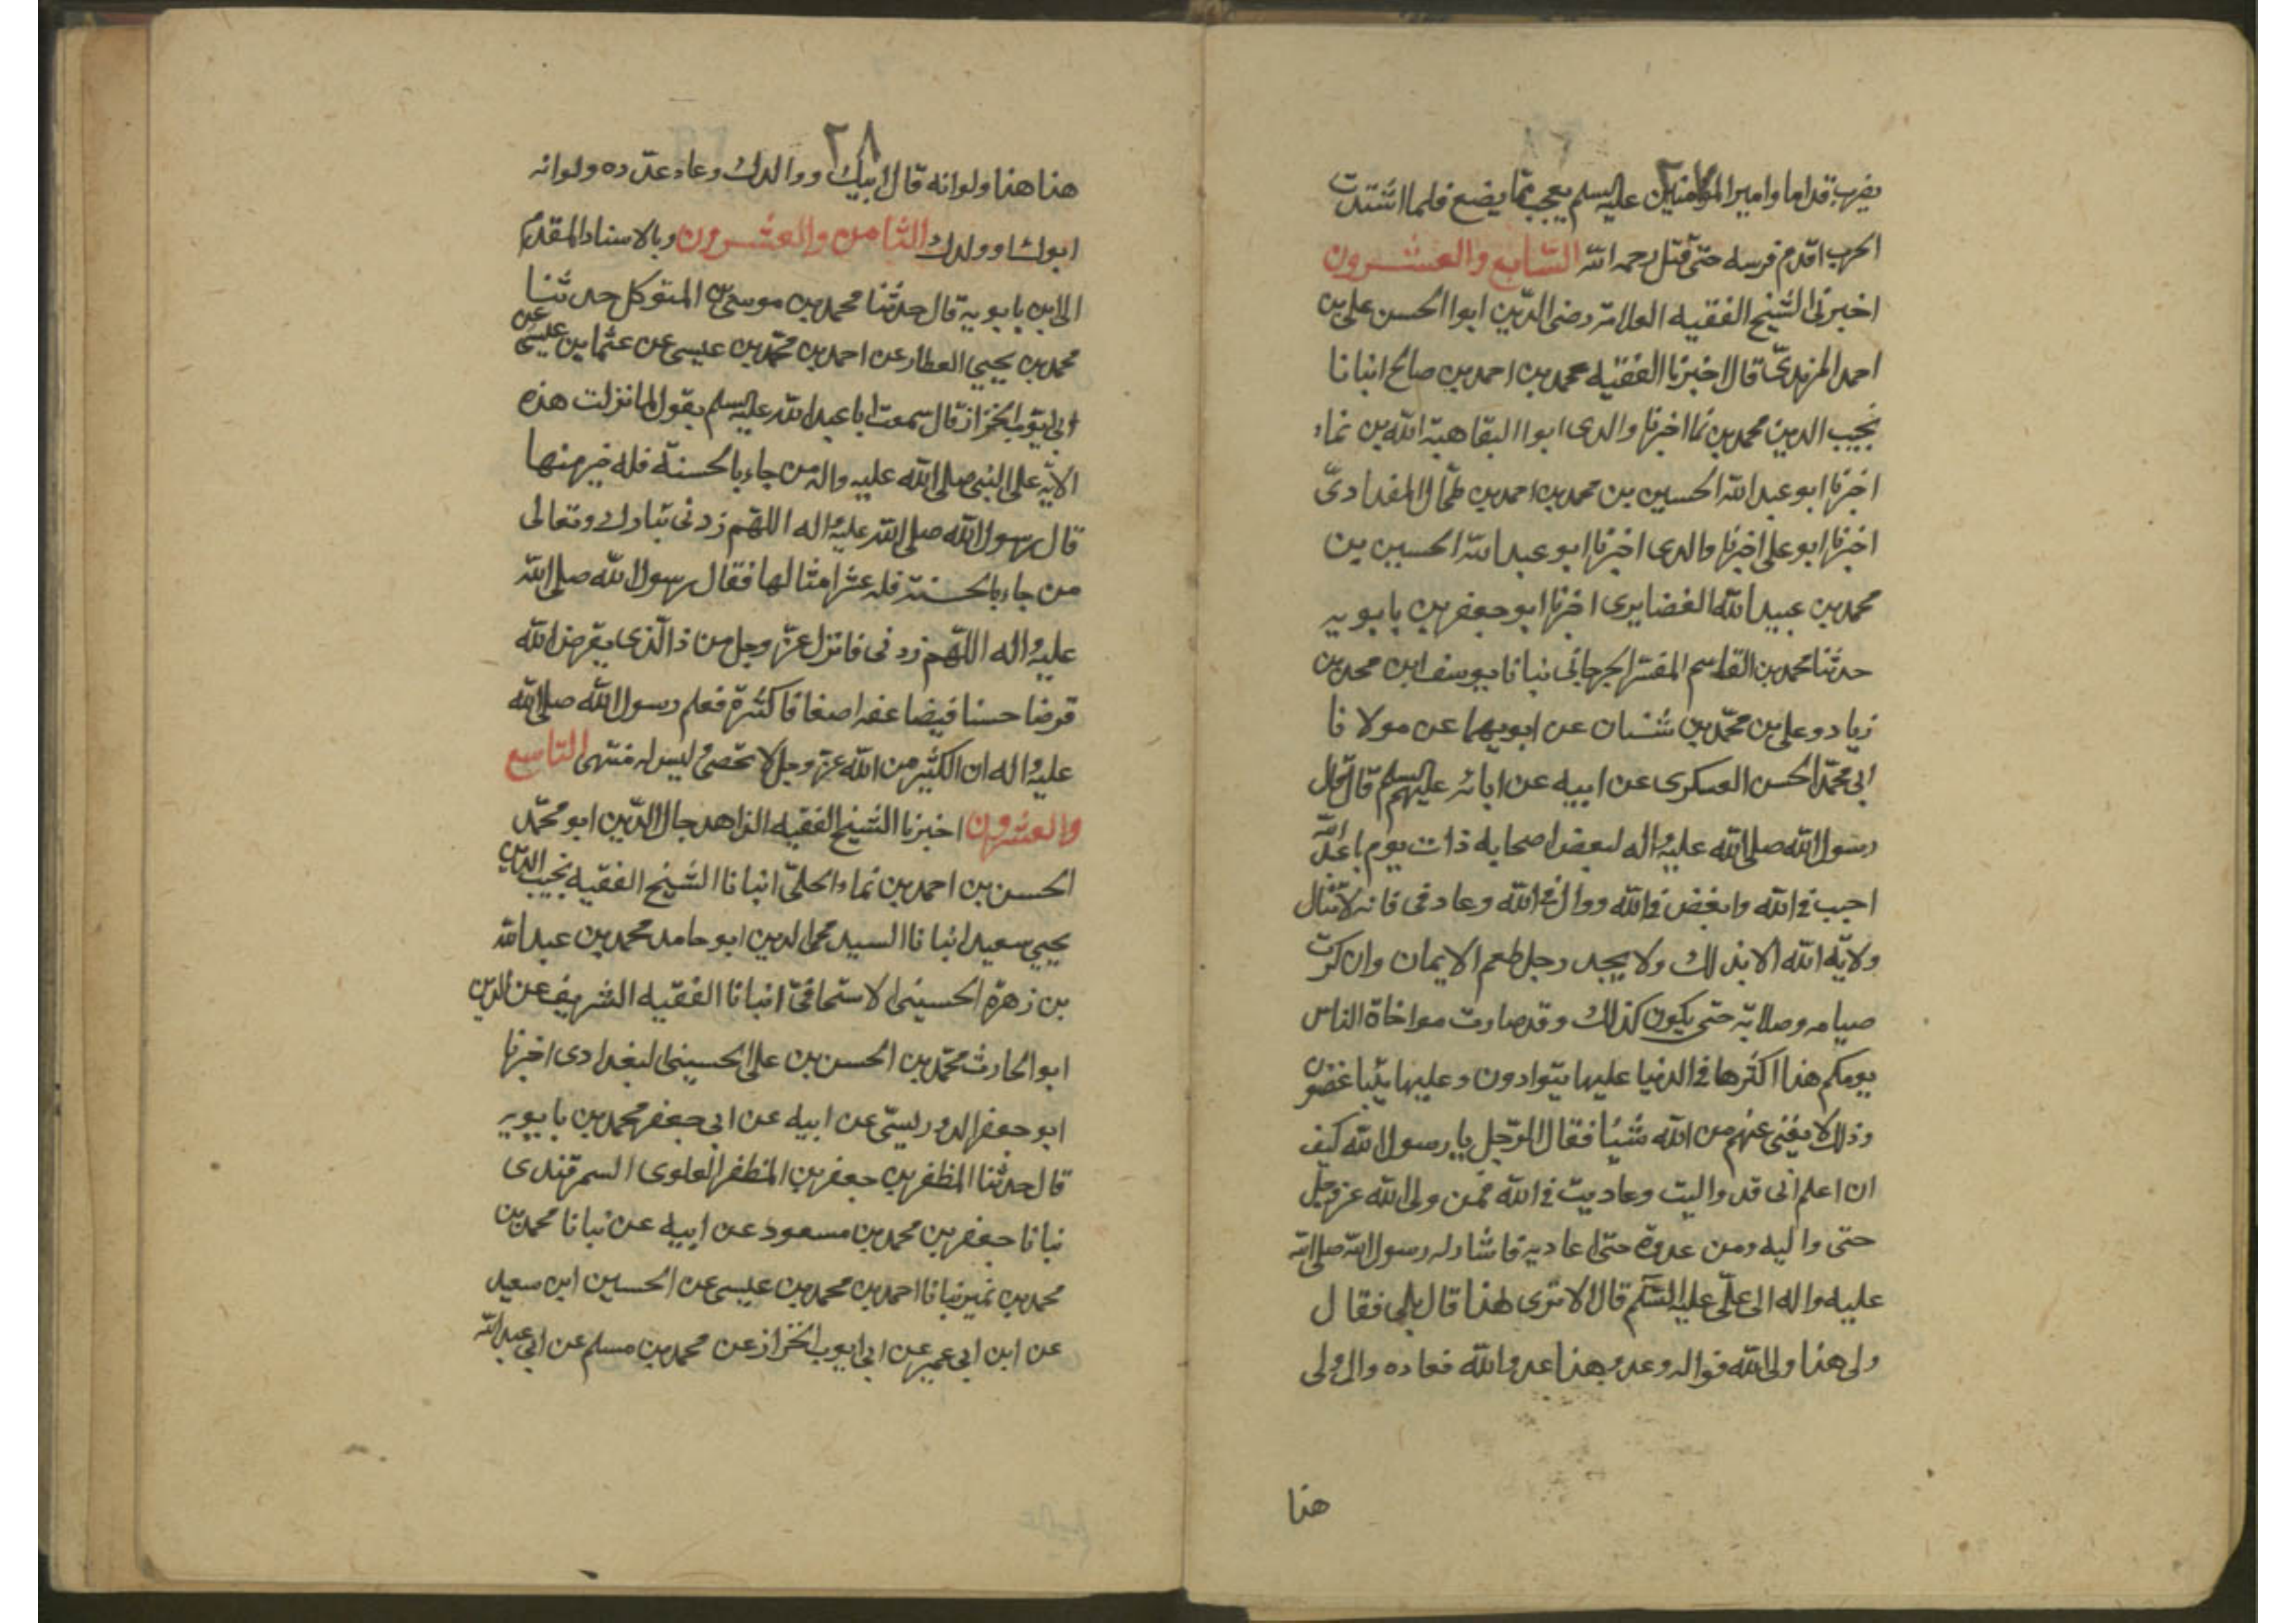 يضرب قداما وامير المؤمنين عليه السلم يعجب مما يصنع فلما اشتدت
الحرب اقدم فرسه حتى قتل رحمه الله السابع والعشرون
اخبرنى الشيخ الفقيه العلامة رضى الدين ابوا الحسن على بن
احمد المزيدىّ قال اخبرنا الفقيه محمد بن احمد بن صالح انبانا
نجيب الدين محمد بن نما اخبرنا والدى ابوا البقا هبة الله بن نماء
اخبرنا ابو عبد الله الحسين بن محمد بن احمد بن طحال المقدادىّ
اخبرنا ابو على اخبرنا والدى اخبرنا ابو عبد الله الحسين بن
محمد بن عبيد الله الغضايرى اخبرنا ابو جعفر بن بابويه
حدثنا محمد بن القاسم المفسر الجرجانى نبانا يوسف ابن محمد بن
زياد وعلى بن محمّد بن شنبان عن ابويهما عن مولانا
ابى محمّد الحسن العسكرى عن ابيه عن ابائه عليهم السلم قال قال
رسول الله صلى الله عليه واله لبعض اصحابه ذات يوم يا عبد الله
احبب فى الله وابغض فى الله ووال فى الله وعاد فى فانه لا تنال
ولاية الله الا بذلك ولا يجد رجل طعم الايمان وان كثرت
صيامه وصلاته حتى يكون كذلك وقد صارت مواخاة الناس
يومكم هذا اكثرها فى الدنيا عليها يتوادون وعليها يتباغضون
وذلك لا يغنى عنهم من الله شيئا فقال الرّجل يا رسول الله كيف
ان اعلم انى قد واليت وعاديت فى الله فمن ولى الله عز وجل
حتى واليه ومن عدوه حتى اعاديه فاشار له رسول الله صلى الله
عليه واله الى علّى عليه السّلم قال الا ترى هذا قال بلى فقال
ولى هذا ولى الله فواله وعدو هذا عدو الله فعاده وال ولى
هذا
٢٨
هذا هذا ولو انه قال ابيك ووالدك وعاد عدّ ده ولو انه
ابوك او ولدك الثامن والعشرون وبالاسناد المقدم
الى ابن بابويه قال حدثنا محمد بن موسى بن المتوكل حدثنا
محمد بن يحيى العطار عن احمد بن محمّد بن عيسى عن عثما بن عيسى عن
ابى ايوب الخزاز قال سمعت ابا عبد الله عليه السلم يقول لما نزلت هذه
الاية على النبى صلى الله عليه واله من جاء بالحسنة فله خير منها
قال رسول الله صلى الله عليه واله اللهم زدنى تبارك وتعالى
من جاء بالحسنة فله عشر امثالها فقال رسول الله صلى الله
عليه واله اللّهم زدنى فانزل عزّ وجل من ذا الّذى يقرض الله
قرضا حسنا فيضاعفه اضعافا كثيرة فعلم رسول الله صلى الله
عليه واله ان الكثير من الله عز وجل لا تحصى ليس له منتهى التاسع
والعشرون اخبرنا الشيخ الفقيه الزاهد جال الدّين ابو محمّد
الحسن بن احمد بن نماء الحلىّ انبانا الشيخ الفقيه نجيب الدين
يحيى سعيد انبانا السيد محى الدين ابو حامد محمد بن عبد الله
بن زهرة الحسينى الاسحاقىّ انبانا الفقيه الشريف عز الدين
ابو الحارث محمّد بن الحسن بن على الحسينى البغدادى اخبرنا
ابو جعفر الدوريستى عن ابيه عن ابى جعفر محمد بن بابويه
قال حدثنا المظفر بن جعفر بن المظفر العلوى السمرقندى
نبانا جعفر بن محمد بن مسعود عن ابيه عن نبانا محمد بن
محمد بن نمير نبانا احمد بن محمد بن عيسى عن الحسين ابن سعيد
عن ابن ابى عمير عن ابى ايوب الخزاز عن محمد بن مسلم عن ابى عبد الله